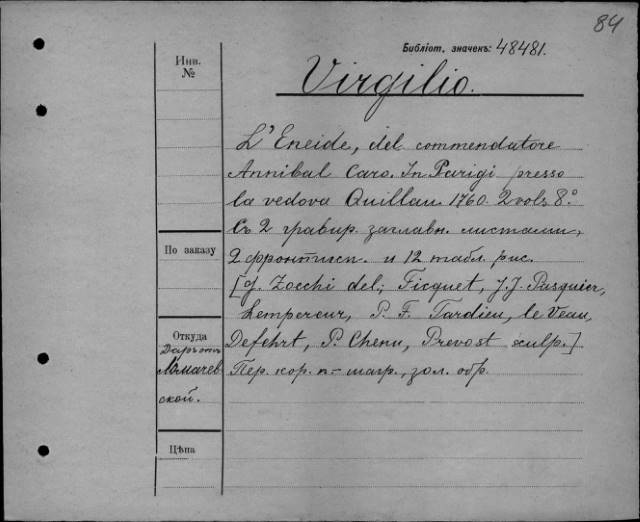 84
Библіот. значекъ: 48481.
Инв. №
Virgilio.
L'Eneide, del commendatore
Annibal Caro. In Parigi presso
la vedova Quillau 1760. 2 vol. 8.°
Съ 2 гравир. заглавн. листами,
По заказу
2 фронтисп. и 12 табл. рис.
[g. Zocchi del; Ficquet, J. J. Pasquier,
Lempereur, P. F. Tardieu, le Veau,
Откуда
Defehrt, P. Chenu, Prevost sculp.]
Даръ отъ
Ломачев
ской.
Пер. кор. п-шагр., зол. обр.
Цѣна